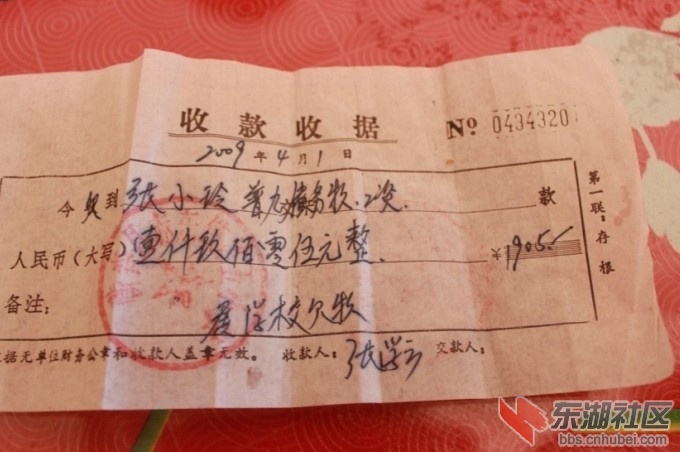 收款收据 № 0434320
2009年4月1日
今欠到 张小玲 普九 款
人民币(大写) 壹仟玖佰零伍元整 ¥1905.-
备注: 学校欠款
据无单位财务公章和收款人盖章无效。 收款人: 张 交款人:
第一联:存根
东湖社区
bbs.cnhubei.com